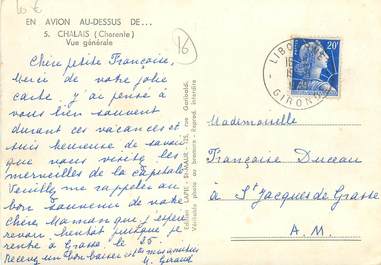 EN AVION AU-DESSUS DE...
5. CHALAIS (Charente)
Vue générale
16
Chère petite Françoise,
Merci de votre jolie
carte. j'ai pensé à
vous bien souvent
durant ces vacances et
suis heureuse de savoir
que vous visitez les
merveilles de la capitale
Veuillez me rappeler au
bon souvenir de votre
chère Maman que j'espère
revoir bientôt puisque je
rentre à Grasse le 25.
recevez un bon baiser et mes amitiés
M. Giraud
Edition LAPIE - St-MAUR - 125, rue Garibaldi
Véritable photo au bromure - Reprod. interdite
LIBOURNE
GIRONDE
20F
Mademoiselle
Françoise Duceau
à St Jacques de Grasse
A. M.